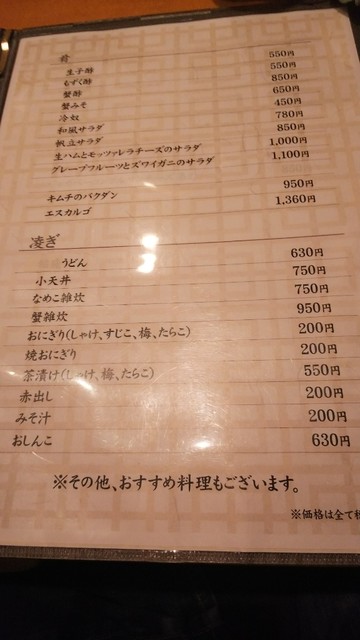 肴
生子酢 550円
もずく酢 550円
蟹酢 850円
蟹みそ 650円
冷奴 450円
和風サラダ 780円
帆立サラダ 850円
生ハムとモッツァレラチーズのサラダ 1,000円
グレープフルーツとズワイガニのサラダ 1,100円
キムチのバクダン 950円
エスカルゴ 1,360円
凌ぎ
うどん 630円
小天丼 750円
なめこ雑炊 750円
蟹雑炊 950円
おにぎり(しゃけ、すじこ、梅、たらこ) 200円
焼おにぎり 200円
茶漬け(しゃけ、梅、たらこ) 550円
赤出し 200円
みそ汁 200円
おしんこ 630円
※その他、おすすめ料理もございます。
※価格は全て